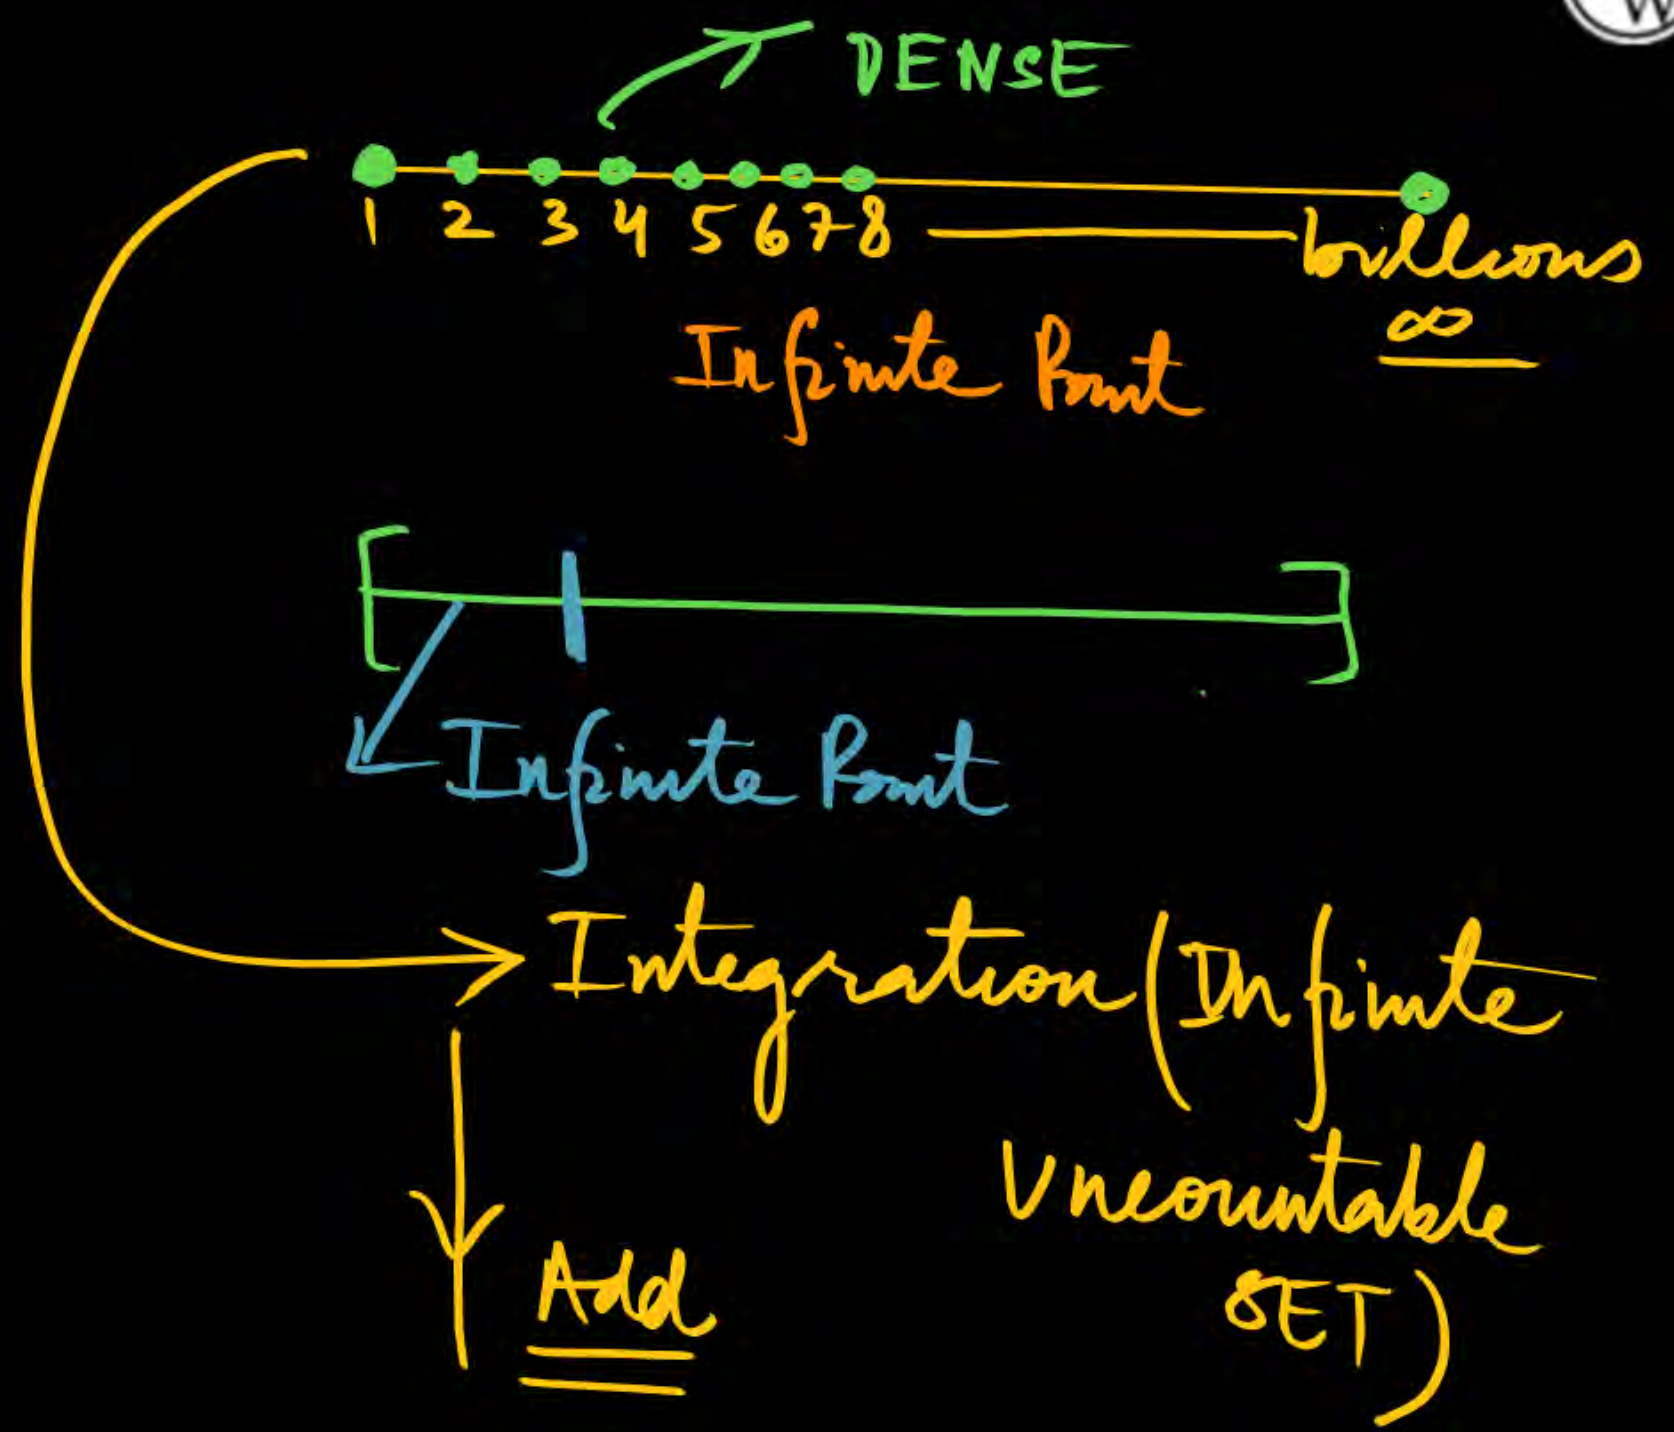 DENSE
1 2 3 4 5 6 7 8 billions
∞
Infinite Point
Infinite Point
Integration (Infinite
Uncountable
SET)
Add